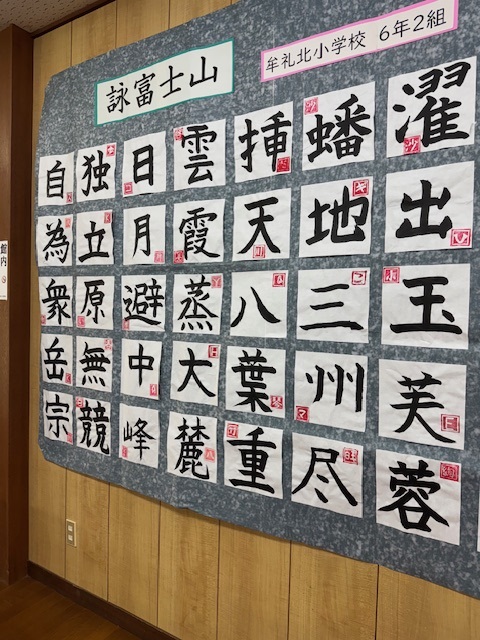 詠富士山
牟礼北小学校 6年2組
濯出玉芙蓉
蟠地三州尽
挿天八葉重
雲霞蒸大麓
日月避中峰
独立原無競
自為衆岳宗
館内